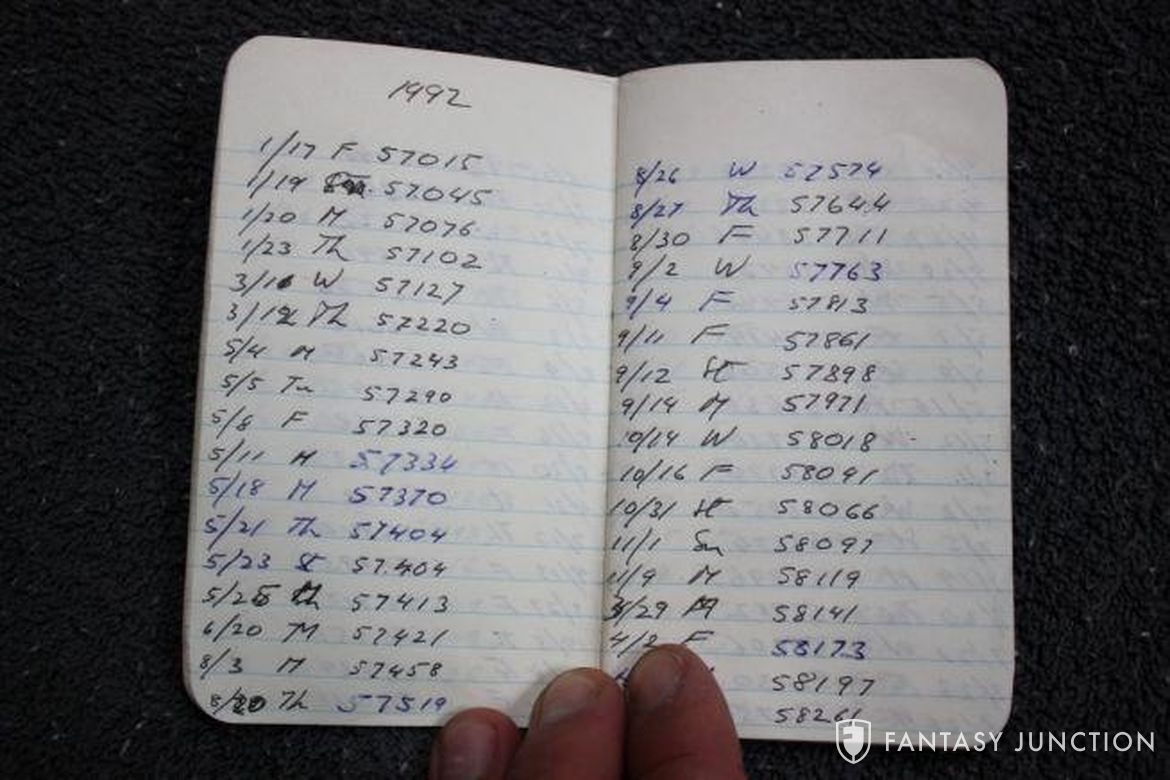 1992
1/17 F 57015
1/19 57045
1/20 M 57076
1/23 Th 57102
3/18 W 57127
3/19 Th 57220
5/4 M 57243
5/5 Tu 57290
5/8 F 57320
5/11 M 57334
5/18 M 57370
5/21 Th 57404
5/23 St 57404
5/25 M 57413
6/20 M 57421
8/3 M 57458
8/20 Th 57519
8/26 W 57574
8/27 Th 57644
8/30 F 57711
9/2 W 57763
9/4 F 57813
9/11 F 57861
9/12 St 57898
9/14 M 57971
10/14 W 58018
10/16 F 58041
10/31 St 58066
11/1 Sn 58097
11/9 M 58119
3/29 M 58141
4/2 F 58173
58197
58261
FANTASY JUNCTION